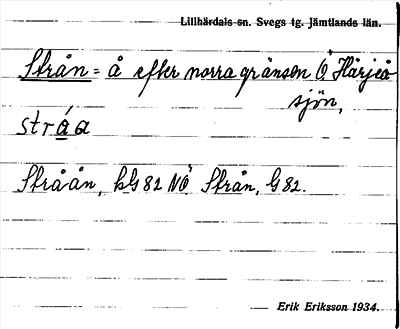 Lillhärdals sn. Svegs tg. Jämtlands län.
Strån = å efter norra gränsen Ö Härjeå
sjön,
stráa
Stråån, kG 82 NÖ Strån, G 82.
Erik Eriksson 1934.